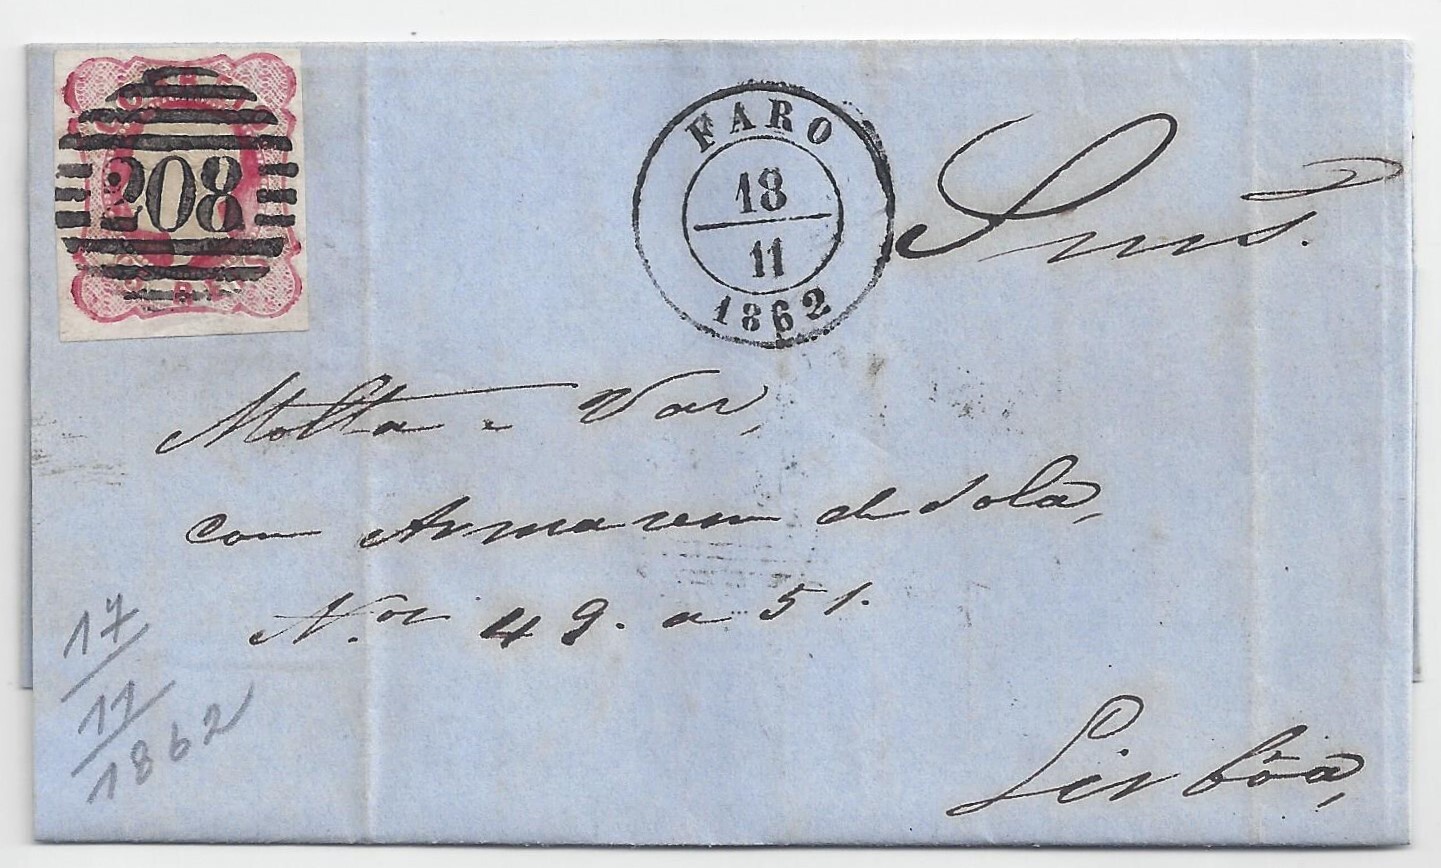 208
FARO
18
11
1862
Snrs.
Motta e Vaz,
com Armazem de Sola,
N.os 49. a 51.
Lisbôa,
17
11
1862